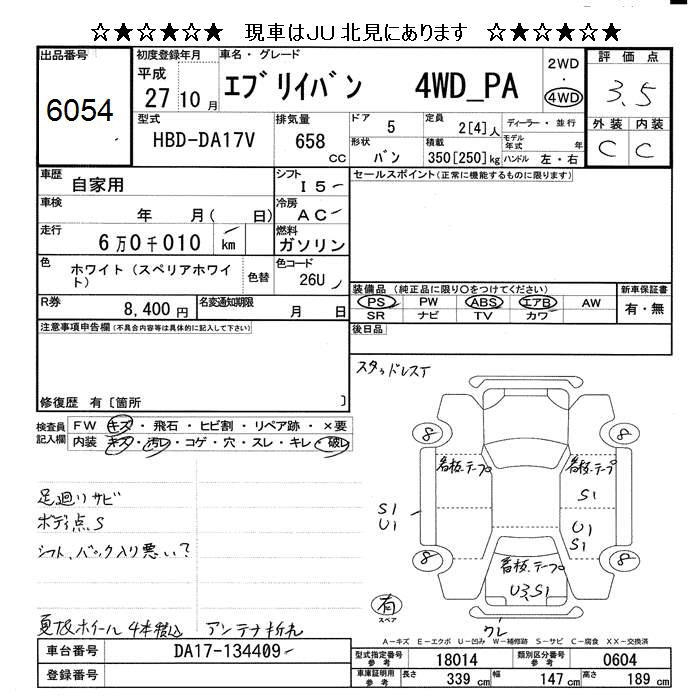 ☆★☆★☆★ 現車はJU北見にあります ☆★☆★☆★
出品番号 初度登録年月 車名・グレード 評価点
6054 平成 27 10月 エブリイバン 4WD_PA 2WD・4WD 3.5
型式 排気量 ドア 5 定員 2[4]人 ディーラー・並行 外装 内装
HBD-DA17V 658 cc 形状 バン 積載 350[250]kg モデル年式 年 ハンドル 左・右 C C
車歴 自家用 シフト I5 セールスポイント(正常に機能するものに限ります)
車検 年 月( 日) 冷房 AC
走行 6万0千010 km 燃料 ガソリン
色 ホワイト(スペリアホワイト) 色替 色コード 26U
装備品(純正品に限り○をつけてください) 新車保証書
PS PW ABS エアB AW 有・無
SR ナビ TV カワ
R券 8,400円 名変通知期限 月 日
後日品
注意事項申告欄(不具合内容等は具体的に記入して下さい)
修復歴 有〔箇所 〕
検査員記入欄 FW キズ・飛石・ヒビ割・リペア跡・×要
内装 キズ・汚レ・コゲ・穴・スレ・キレ・破レ
足廻りサビ
ボデー点S
シフト、バック入り悪い?
夏タイヤホイール4本積込 アンテナ折れ
スタッドレスT
8 8
看板.テープ 看板.テープ
S1
S1 U1
U1 S1
8 8
看板.テープ
U3.S1
有
スペア
クレ
A-キズ E-エクボ U-凹み W-補修跡 S-サビ C-腐食 XX-交換済
車台番号 DA17-134409
登録番号
型式指定番号 参考 18014 類別区分番号 参考 0604
車庫証明用 参考 長さ 339 cm 幅 147 cm 高さ 189 cm